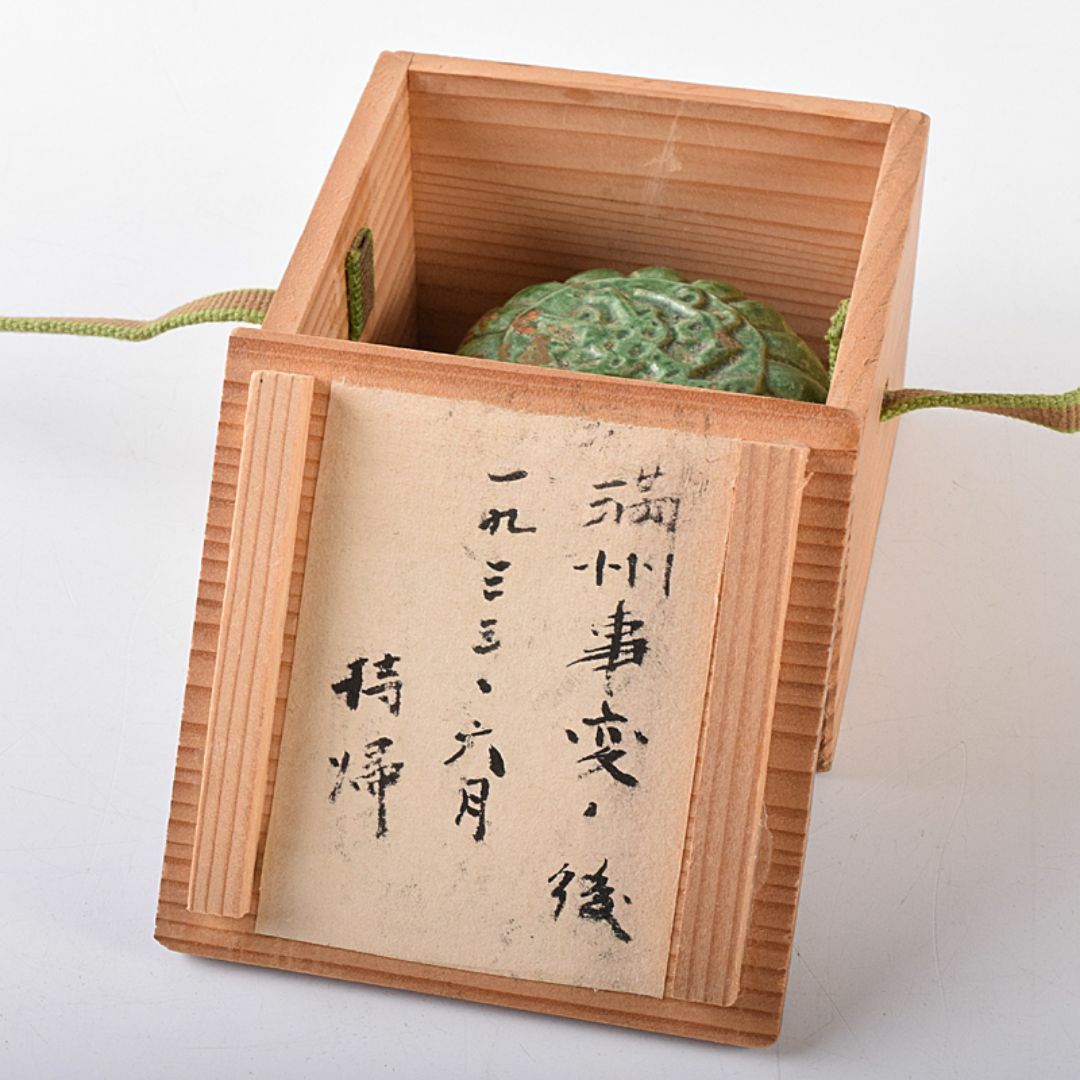 満州事変、後
一九三三、六月
持帰